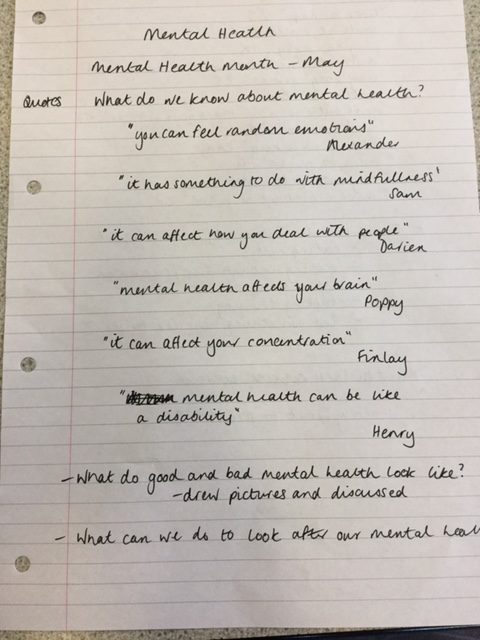 Mental Health
Mental Health Month - May
Quotes What do we know about mental health?
"you can feel random emotions"
Alexander
"it has something to do with mindfullness'
Sam
"it can affect how you deal with people"
Darien
"mental health affects your brain"
Poppy
"it can affect your concentration"
Finlay
" mental health can be like
a disability"
Henry
- What do good and bad mental health look like?
- drew pictures and discussed
- What can we do to look after our mental heal